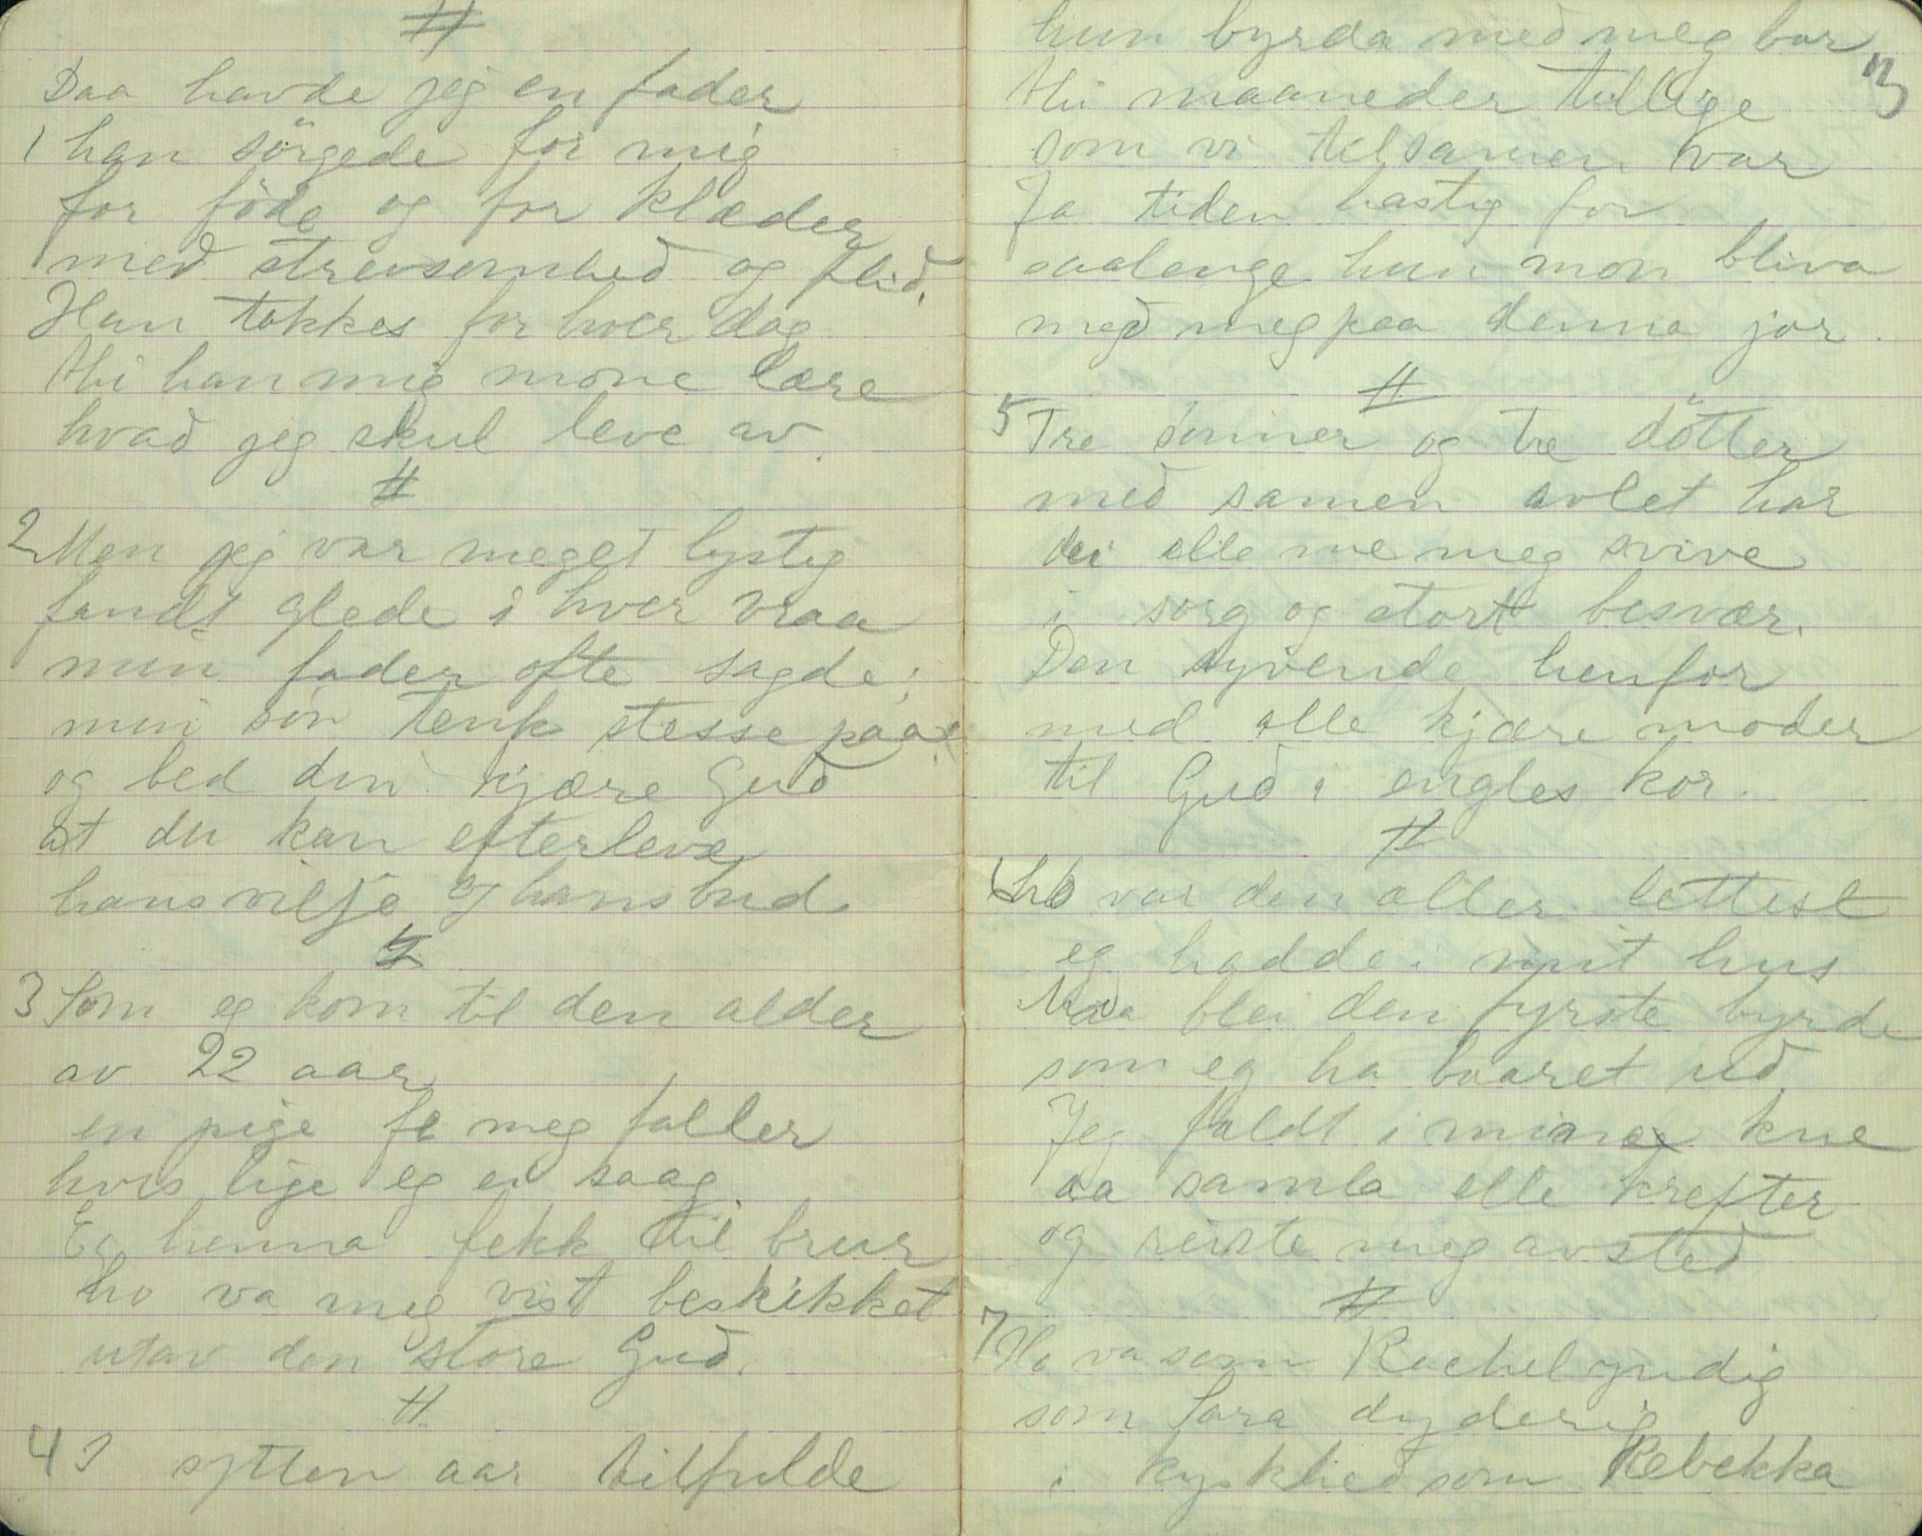 #
Daa havde jeg en fader
1 han sörgede for mig
for föde og for klæder
med strevsomhed og flid.
Han takkes for hver dag
thi han mig mone lære
hvad jeg skul leve av.
#
2 Men jeg var meget lystig
fandt glede i hver vraa
min fader ofte sagde:
min sön tenk stesse paa
og bed din kjære Gud
at du kan efterleve
hans vilje og hans bud
#
3 Som eg kom til den alder
av 22 aar
en pige fe meg faller
hvis lige eg ei saag.
Eg henna fekk til brur
ho va meg vist beskikket
utav den store Gud.
#
4 I sytten aar tilfulde
hun byrda med meg bar
13
thi maaneder tillige
som vi tilsamen var
Ja tiden hastig for
saalenge hun mon bliva
med meg paa denna jor.
#
5 Tre sönner og tre dötter
med samen avlet har
dei alle me meg svive
i sorg og stort besvær.
Den syvende henfor
med alle kjære moder
til Gud i engles kor.
#
6 Ho var den aller lettest
eg hadde i mit hus
blei den fyrste byrde
som eg ha baaret ud
Jeg faldt i mine kne
aa samla alle krefter
og reiste meg avsted
#
7 Ho va som Rachel yndig
som Sara dyderig
i kyskhed som Rebekka